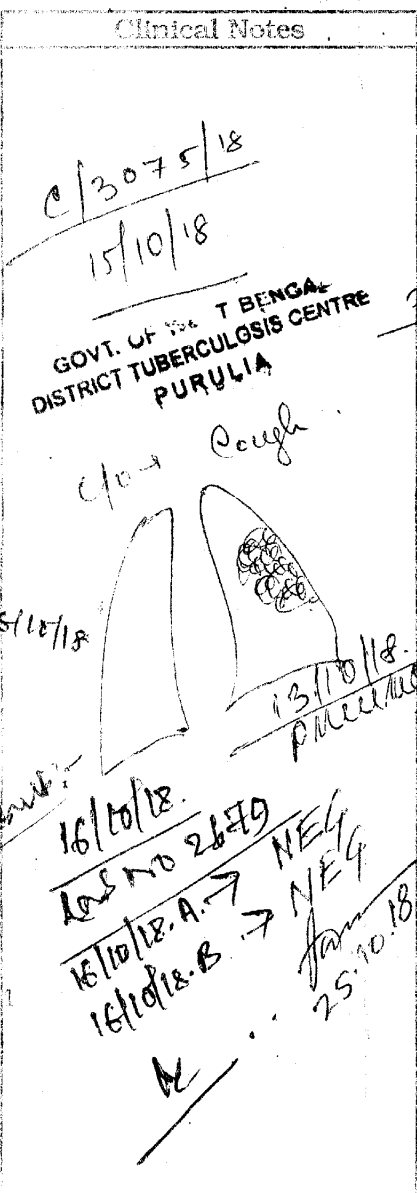 Clinical Notes
C/3075/18
15/10/18
GOVT. OF T BENGAL
DISTRICT TUBERCULOSIS CENTRE
PURULIA
C/o → Cough
/10/18
13/10/18.
16/10/18.
Lab NO 2679
16/10/18. A. → NEG
16/10/18. B → NEG
25.10.18